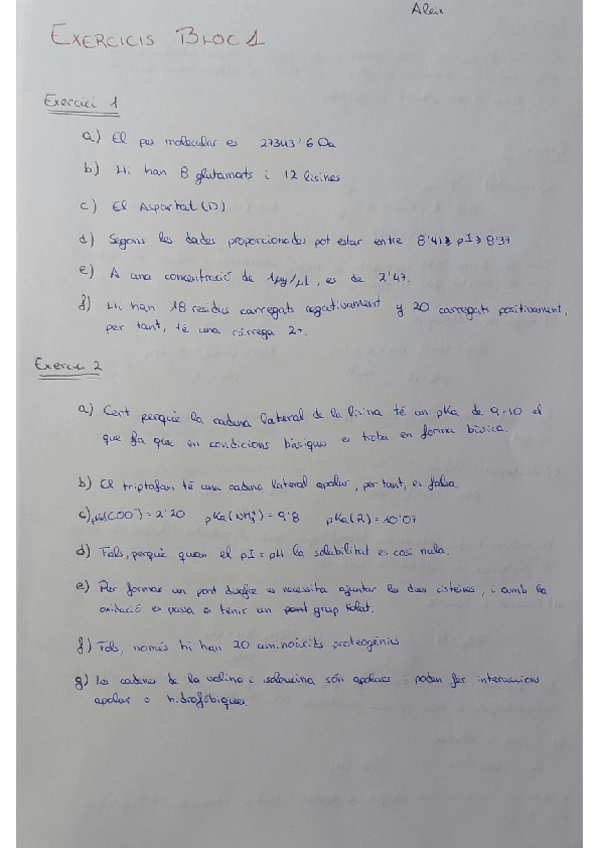 Aleix
EXERCICIS BLOC 1
Exercici 1
a) El pes molecular es 27343'6 Da
b) Hi han 8 glutamats i 12 lisines
c) El Aspartat (D)
d) Segons les dades proporcionades pot estar entre 8'41 ≥ pI ≥ 8'37
e) A una concentració de 1µg/µl, es de 2'47.
f) Hi han 18 residus carregats negativament y 20 carregats positivament,
per tant, té una càrrega 2+.
Exercici 2
a) Cert perquè la cadena lateral de la lisina té un pKa de 9-10 el
que fa que en condicions bàsiques es troba en forma bàsica.
b) El triptofan té una cadena lateral apolar, per tant, es falsa.
c) (COO⁻) = 2'20 pKa(NH₃⁺) = 9'8 pKa(R) = 10'07
d) Fals, perquè quan el pI = pH la solubilitat es casi nula.
e) Per formar un pont disulfur es necessita ajuntar les dues cisteïnes, i amb la
oxidació es passa a tenir un pont grup
f) Fals, només hi han 20 aminoàcits proteogènics
g) Les cadenes de la valina i isoleucina són apolars i poden fer interaccions
apolar o hidrofòbiques.